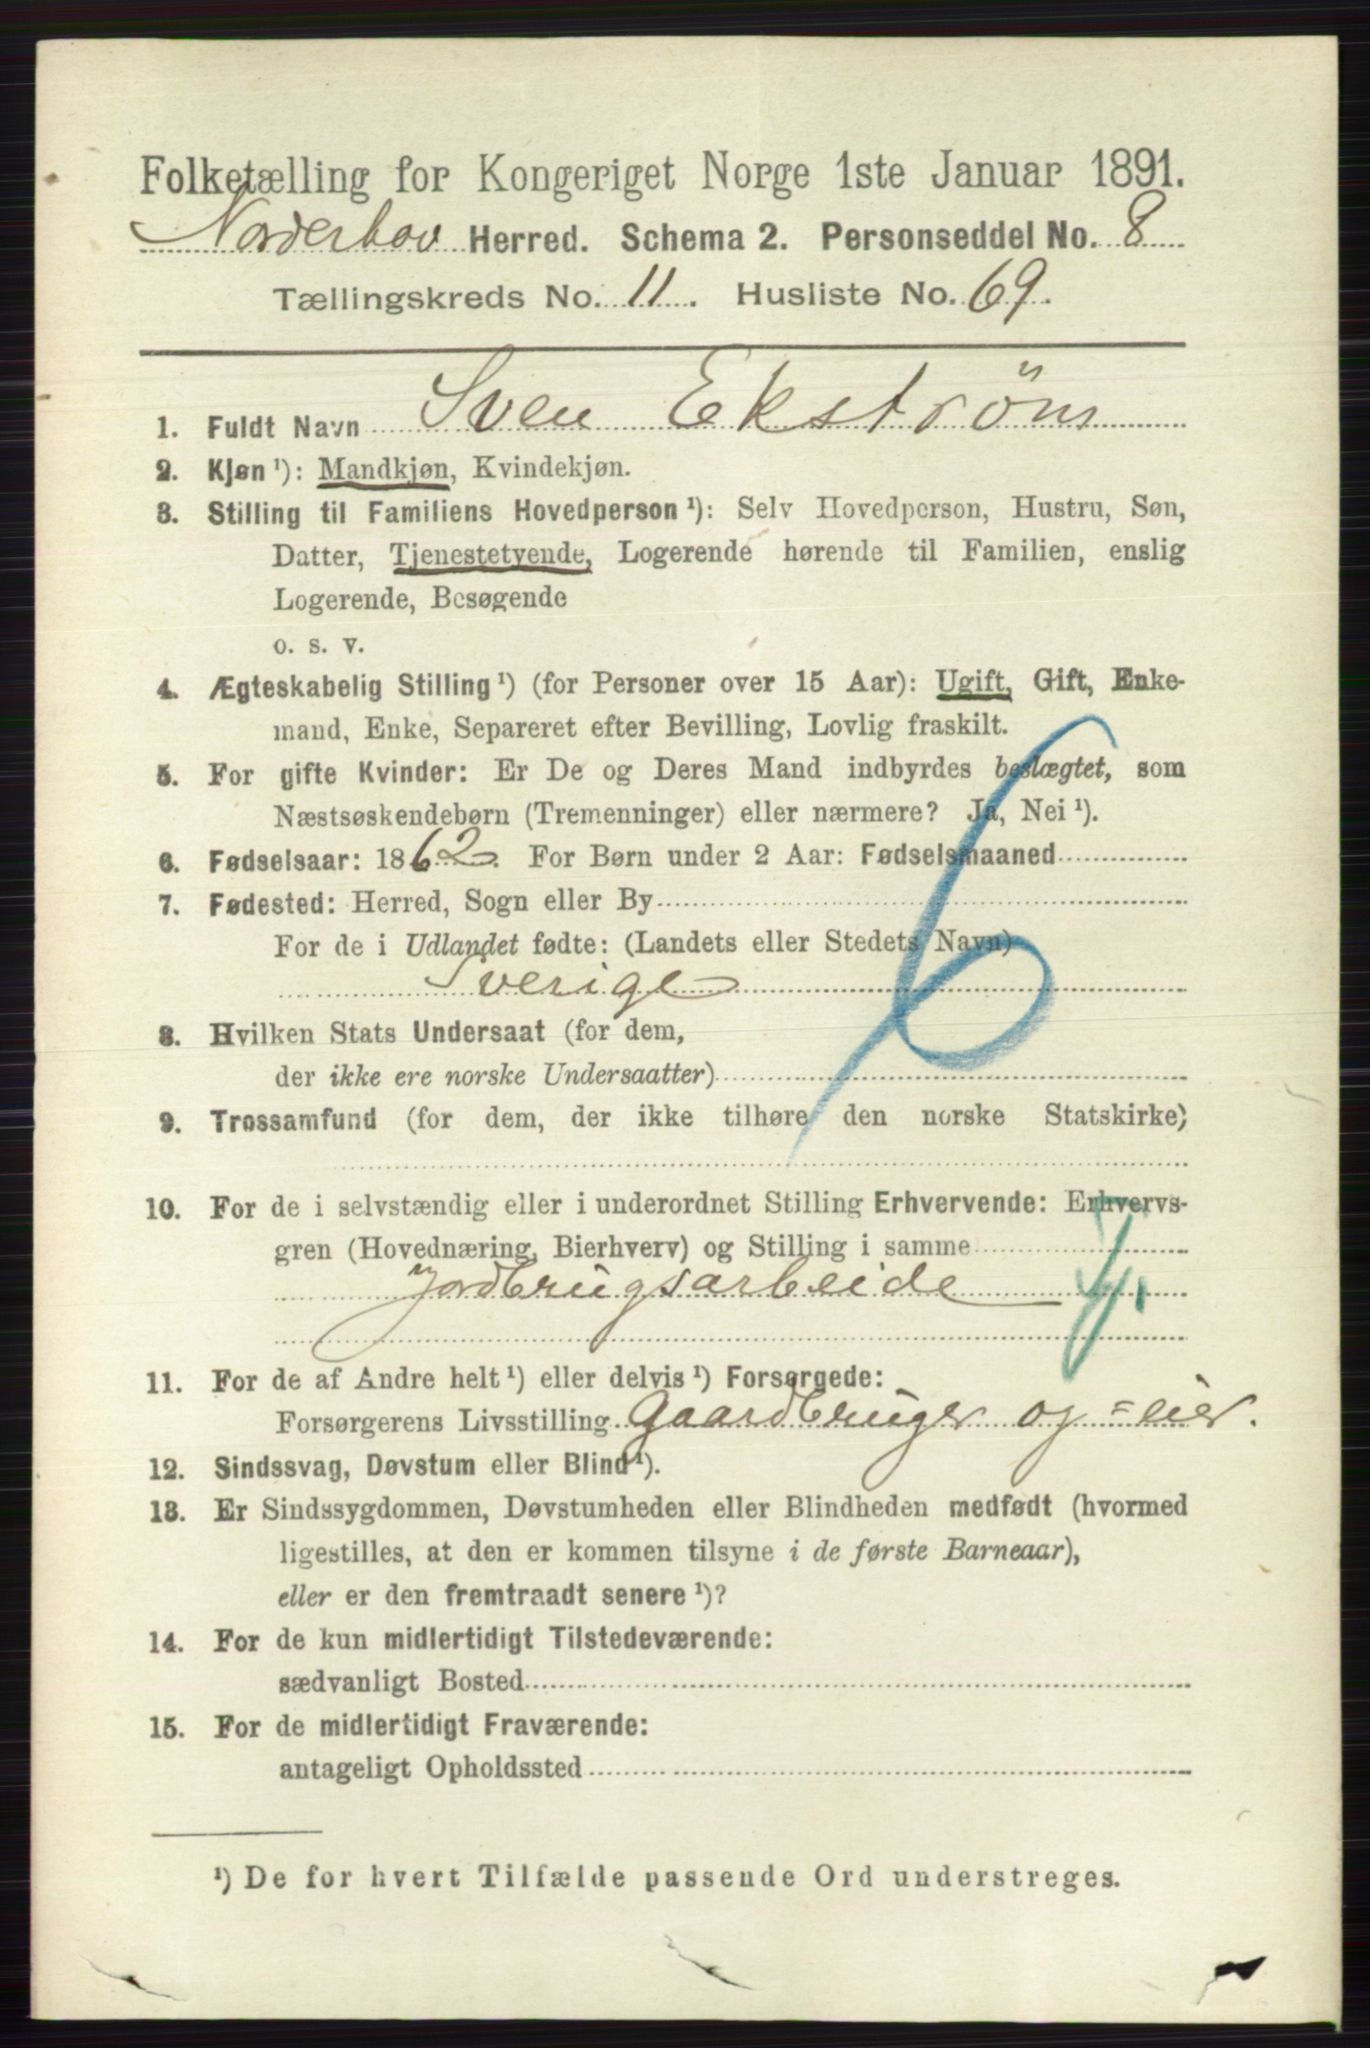 Folketælling for Kongeriget Norge 1ste Januar 1891.
Norderhov Herred. Schema 2. Personseddel No. 8
Tællingskreds No. 11. Husliste No. 69.
1. Fuldt Navn Sven Ekström
2. Kjøn ¹): Mandkjøn, Kvindekjøn.
3. Stilling til Familiens Hovedperson ¹): Selv Hovedperson, Hustru, Søn,
Datter, Tjenestetyende, Logerende hørende til Familien, enslig
Logerende, Besøgende
o. s. v.
4. Ægteskabelig Stilling ¹) (for Personer over 15 Aar): Ugift, Gift, Enke-
mand, Enke, Separeret efter Bevilling, Lovlig fraskilt.
5. For gifte Kvinder: Er De og Deres Mand indbyrdes beslægtet, som
Næstsøskendebørn (Tremenninger) eller nærmere? Ja, Nei ¹).
6. Fødselsaar: 1862. For Børn under 2 Aar: Fødselsmaaned
7. Fødested: Herred, Sogn eller By
For de i Udlandet fødte: (Landets eller Stedets Navn)
Sverige
8. Hvilken Stats Undersaat (for dem,
der ikke ere norske Undersaatter)
9. Trossamfund (for dem, der ikke tilhøre den norske Statskirke)
10. For de i selvstændig eller i underordnet Stilling Erhvervende: Erhvervs-
gren (Hovednæring, Bierhverv) og Stilling i samme
Jordbrugsarbeide
11. For de af Andre helt ¹) eller delvis ¹) Forsørgede:
Forsørgerens Livsstilling Gaardbruger og =eier.
12. Sindssvag, Døvstum eller Blind ¹).
13. Er Sindssygdommen, Døvstumheden eller Blindheden medfødt (hvormed
ligestilles, at den er kommen tilsyne i de første Barneaar),
eller er den fremtraadt senere ¹)?
14. For de kun midlertidigt Tilstedeværende:
sædvanligt Bosted
15. For de midlertidigt Fraværende:
antageligt Opholdssted
¹) De for hvert Tilfælde passende Ord understreges.